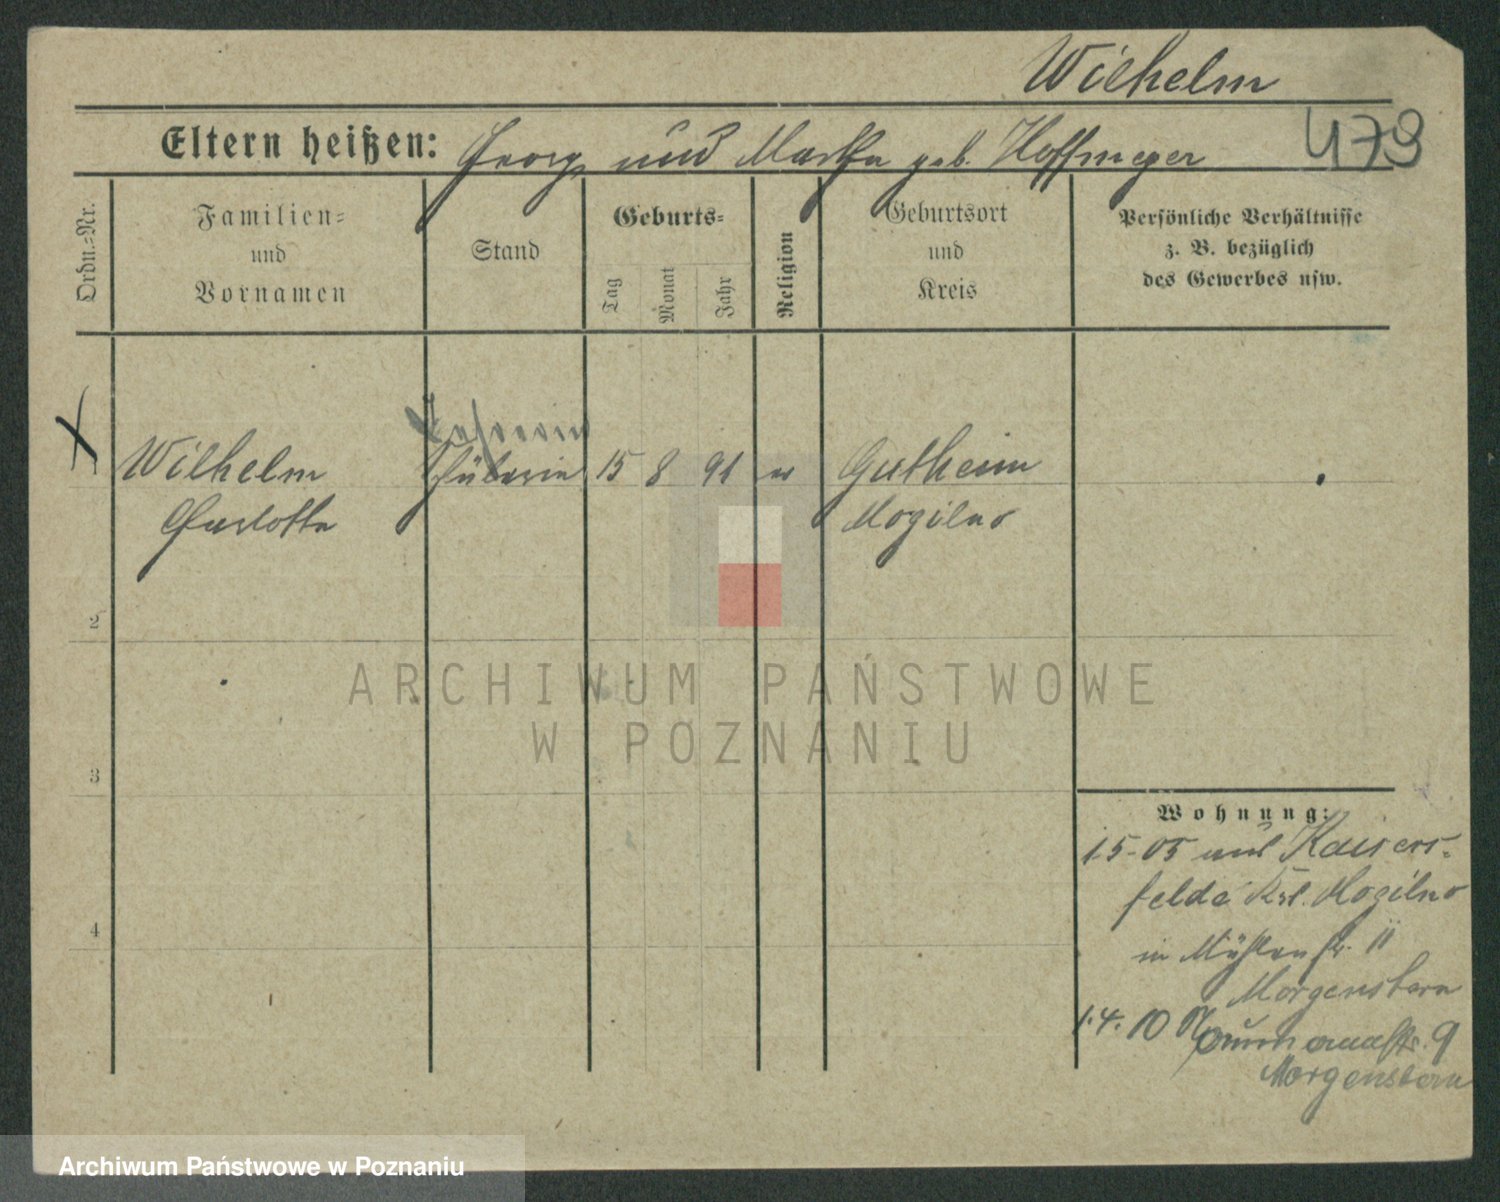 Wilhelm
Eltern heißen: Georg und Martha geb. Hoffmeyer
479
Ordn.=Nr.
Familien=
und
Vornamen
Stand
Geburts=
Tag
Monat
Jahr
Religion
Geburtsort
und
Kreis
Persönliche Verhältnisse
z. B. bezüglich
des Gewerbes usw.
Lehrerin
Wilhelm Schülerin 15 8 91 ev Gutheim
Charlotte Mogilno
2
3
4
Wohnung:
1.5-05 aus Kaisers-
felde Krs. Mogilno
in Mühlenstr. 11
Morgenstern
1.4.10 9
Morgenstern
ARCHIWUM PAŃSTWOWE
W POZNANIU
Archiwum Państwowe w Poznaniu